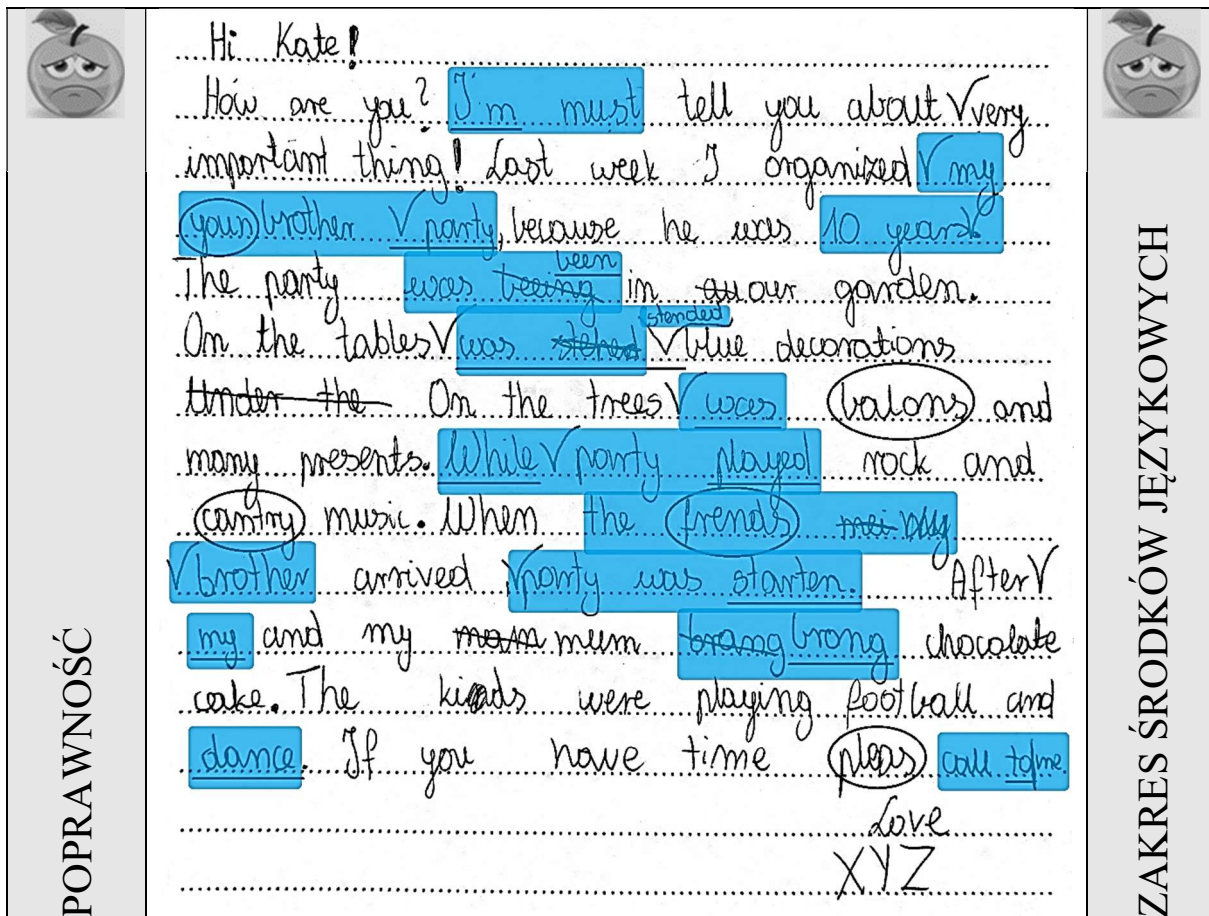 Hi Kate!
How are you? I'm must tell you about V very
important thing! Last week I organized V my
youn brother V party, because he was 10 years V
The party was beeing been in our garden.
On the tables V was stended V blue decorations
Under the On the trees V was balons and
many presents. While V party played rock and
cantry music. When the frends my
V brother arrived V party was starten. After V
my and my mum brang brong chocolate
cake. The kids were playing football and
dance. If you have time pleas call to me.
Love
XYZ
POPRAWNOŚĆ
ZAKRES ŚRODKÓW JĘZYKOWYCH